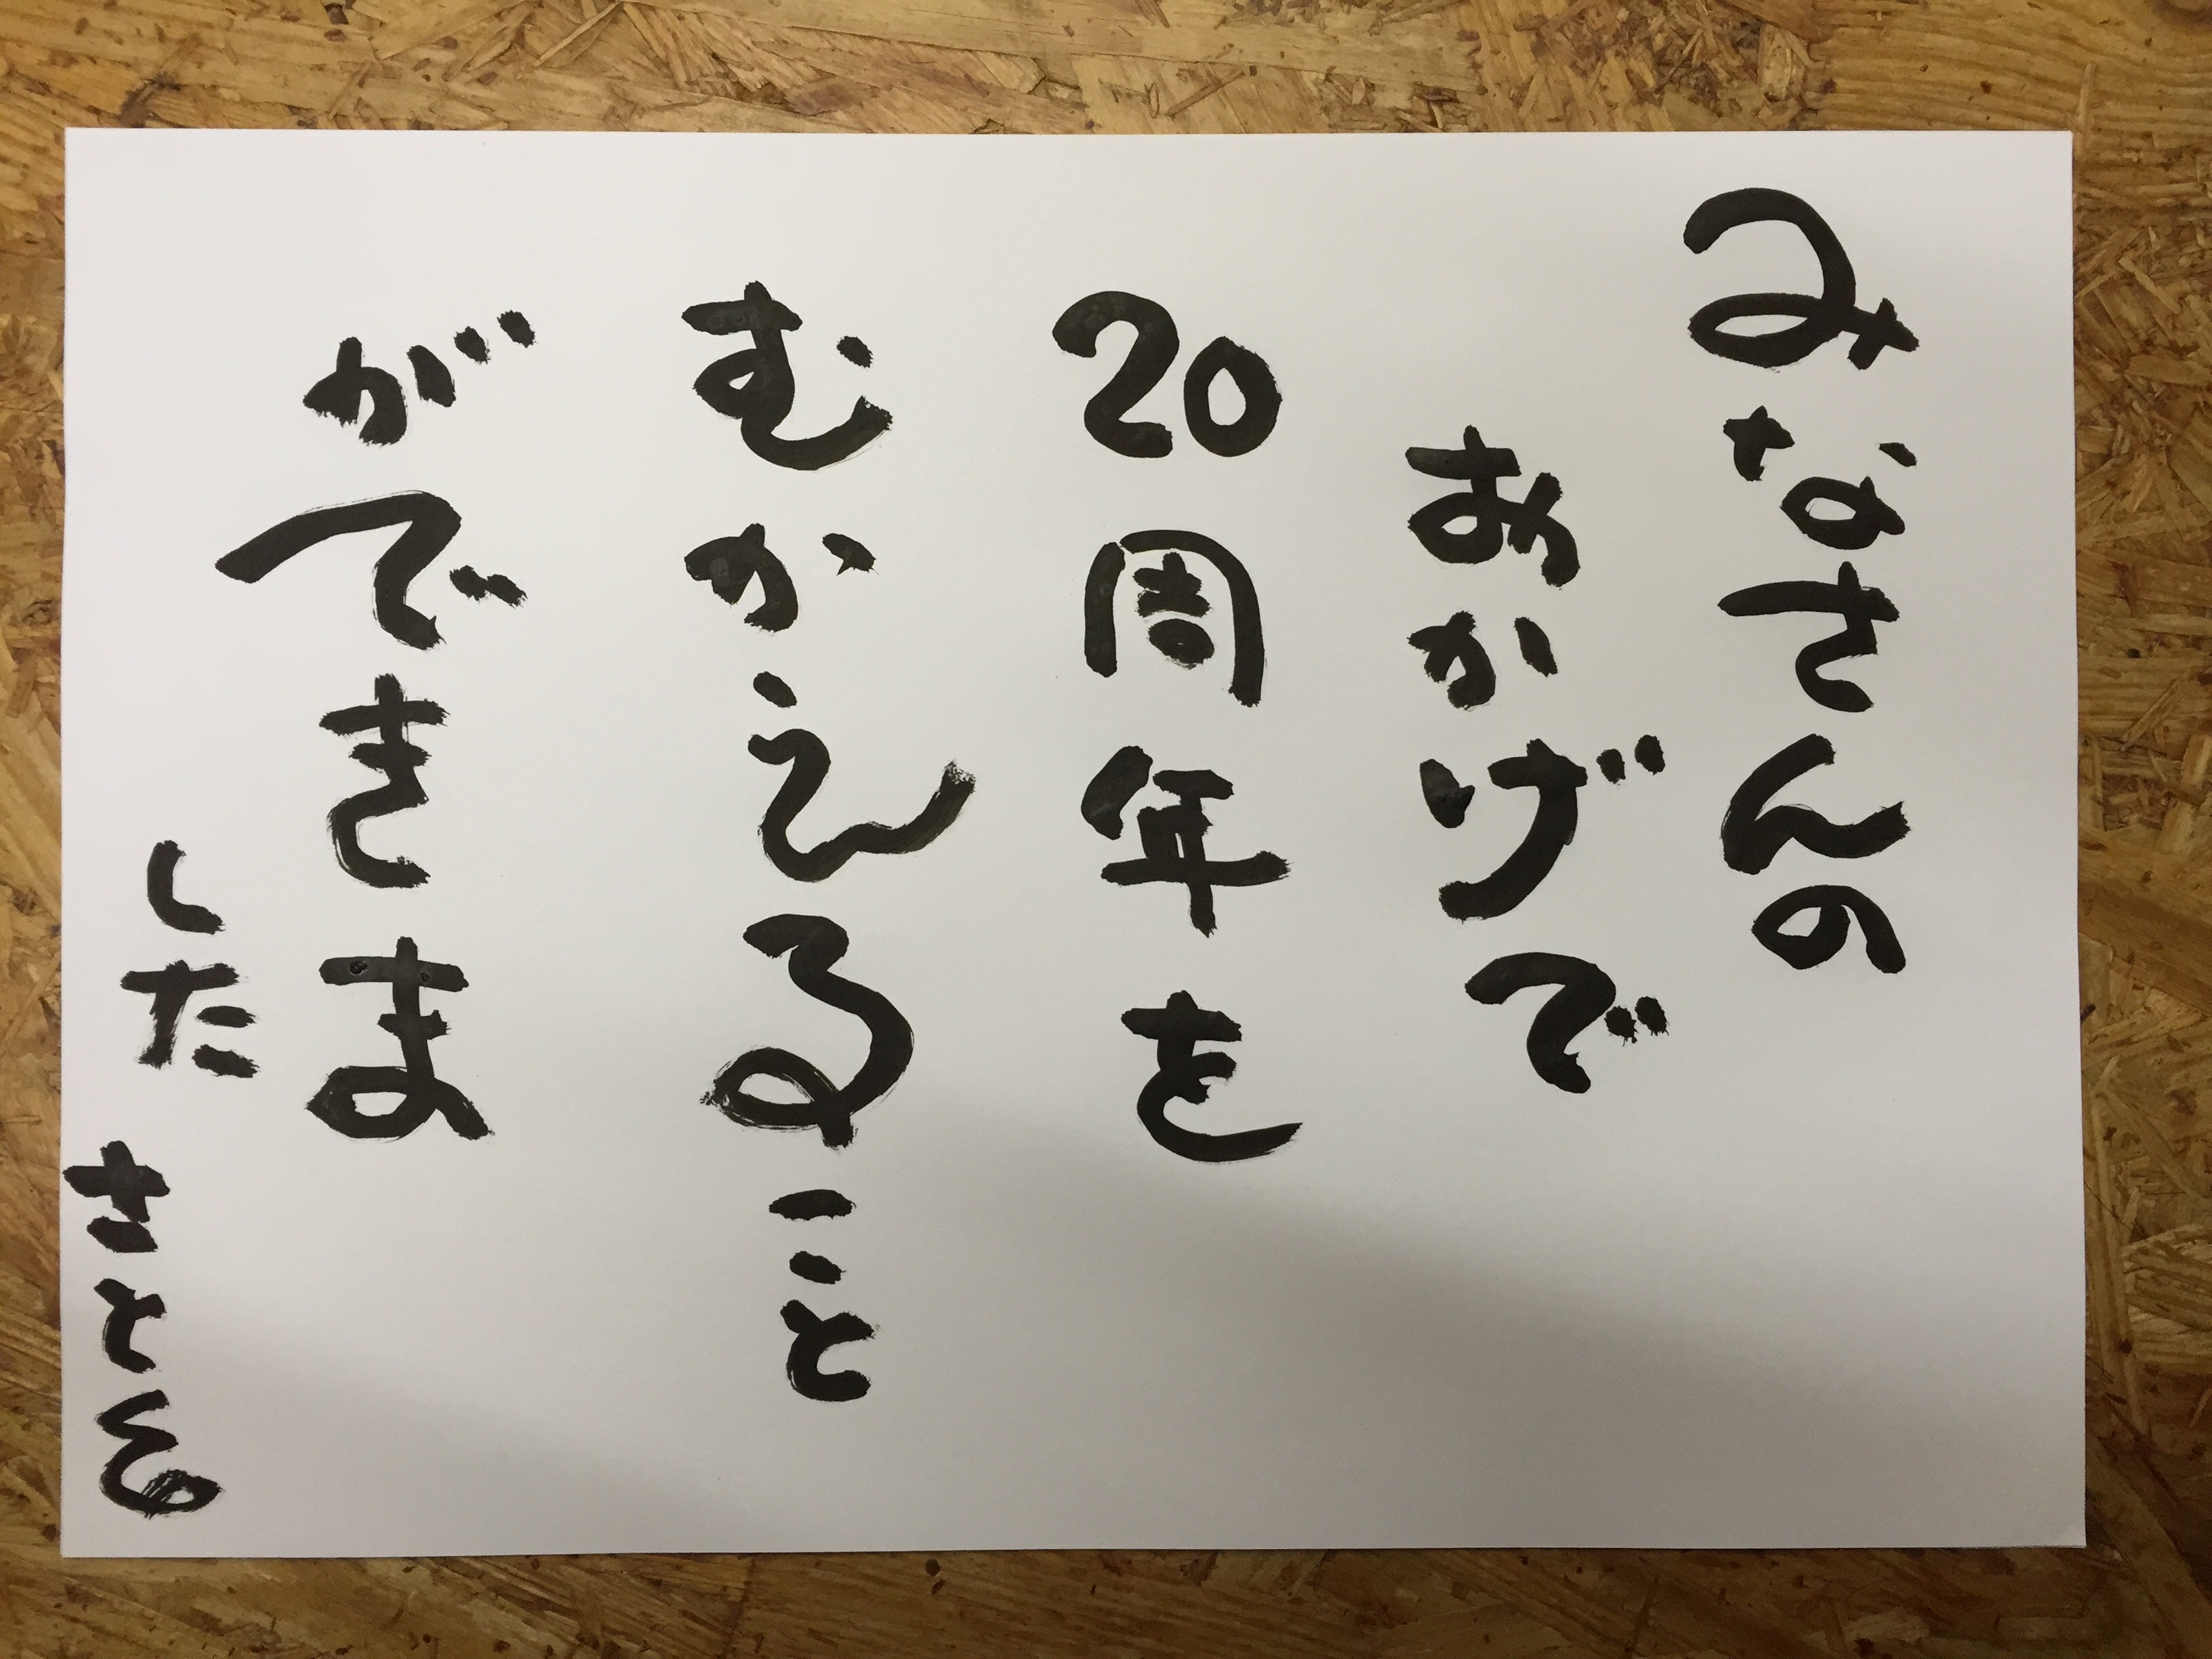 みなさんの
おかげで
20周年を
むかえること
ができま
した
さとる